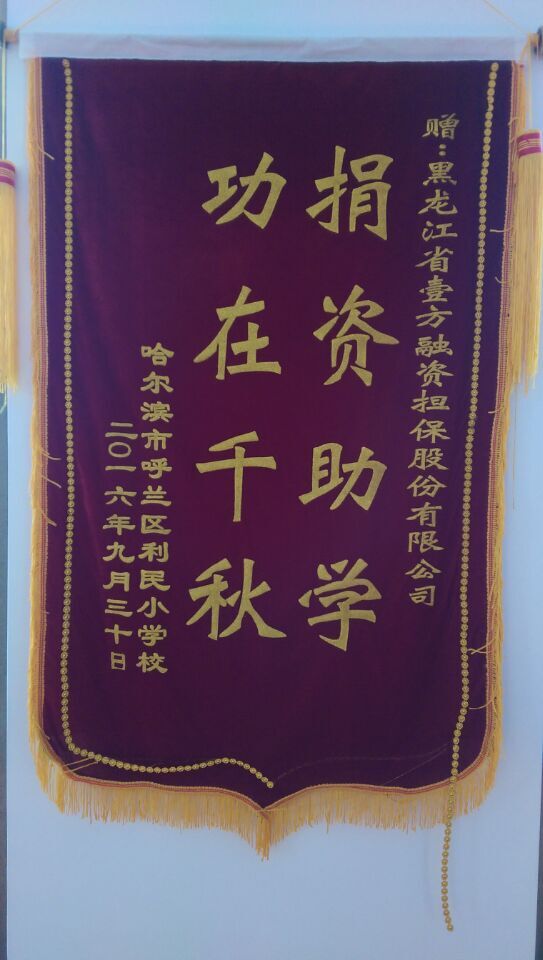 赠:黑龙江省壹方融资担保股份有限公司
捐资助学
功在千秋
哈尔滨市呼兰区利民小学校
二〇一六年九月三十日